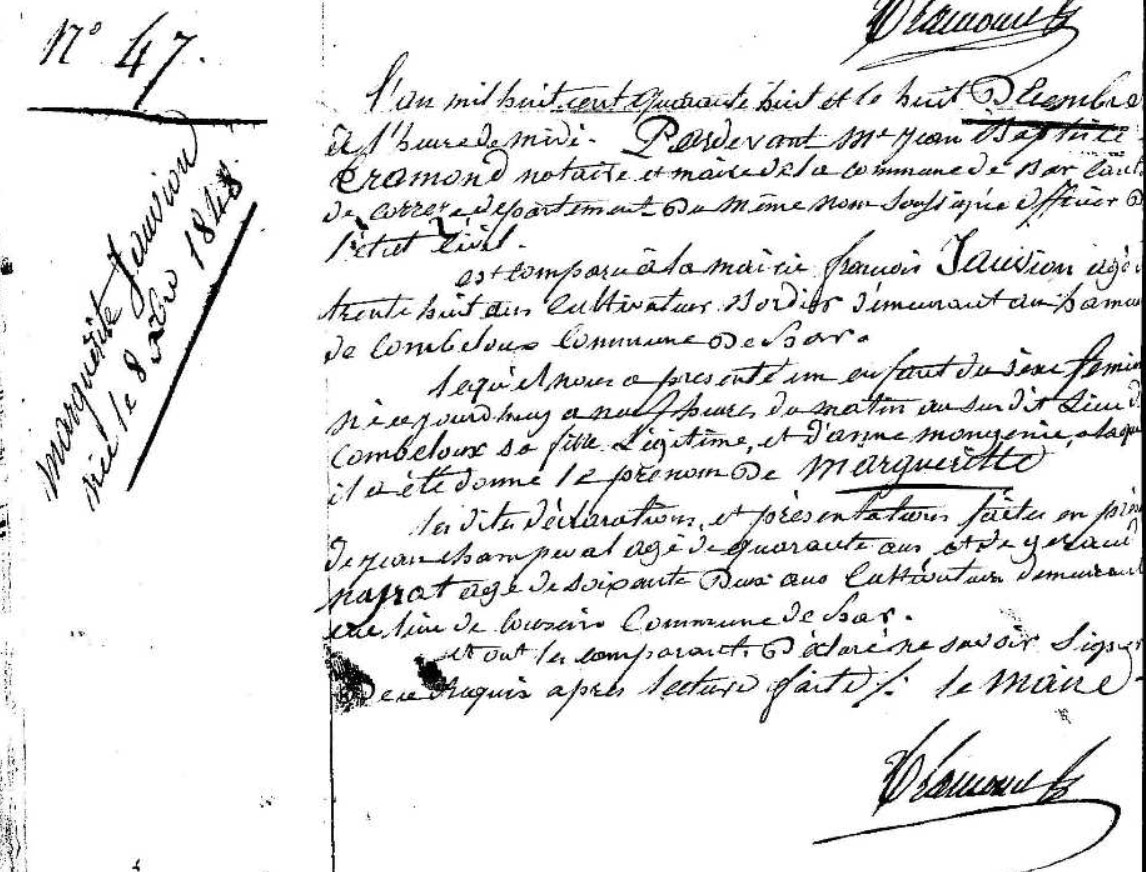 N° 47.
Marguerite Jauvion
née le 8 xbre 1848.
l'an mil huit cent quarante huit et le huit Décembre
à l'heure de midi. Pardevant Mr jean Baptiste
notaire et maire de la commune de Bar cant
de correze departement du même nom soussigné officier D
l'état civil.
est comparu à la mairie françois Jauvion agé
trente huit ans Cultivateur Bordier démeurant au hameau
de Combeloux Commune De Bar.
lequel nous a presenté un enfant du sèxe femin
née cejourdhuy a neuf heures du matin au sus dit Lieu d
Combeloux sa fille Légitime, et d'anne mongenie, a laque
il a été donné le prénom De Margueritte
les dites déclarations, et présentations faites en prés
de jean champeval agé de quarante ans, et de geraud
agé de soixante Deux ans Cultivateurs demeurant
au lieu de Commune de Bar.
et ont les comparants Déclaré ne savoir Signer
De ce Requis après lecture faite /. le Maire